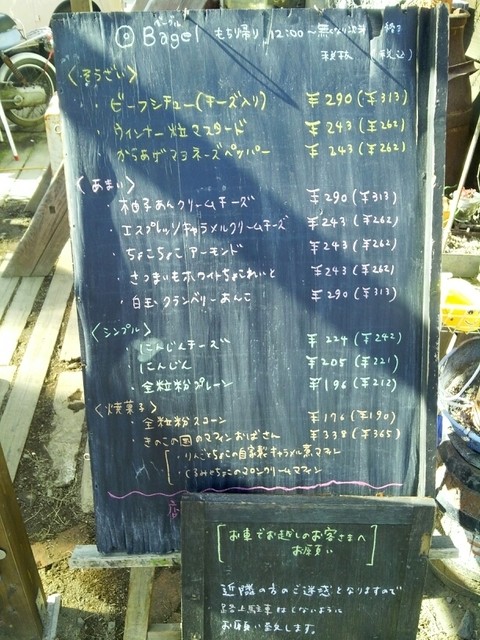 ベーグル
Bagel もちり帰り 12:00〜無くなり次第 終了
税抜 (税込)
〈そうざい〉
・ビーフシチュー(チーズ入り) ¥290(¥313)
・ウインナー粒マスタード ¥243(¥262)
・からあげマヨネーズペッパー ¥243(¥262)
〈あまい〉
・柚子あんクリームチーズ ¥290(¥313)
・エスプレッソキャラメルクリームチーズ ¥243(¥262)
・ちょこちょこアーモンド ¥243(¥262)
・さつまいもホワイトちょこれいと ¥243(¥262)
・白玉クランベリーあんこ ¥290(¥313)
〈シンプル〉
・にんじんチーズ ¥224(¥242)
・にんじん ¥205(¥221)
・全粒粉プレーン ¥196(¥212)
〈焼菓子〉
・全粒粉スコーン ¥176(¥190)
・きのこの国のマフィンおばさん ¥338(¥365)
・りんごちょこの自家製キャラメル素マフィン
・くるみちょこのマロンクリームマフィン
店
[お車でお越しのお客さまへ
お願い]
近隣の方のご迷惑となりますので
路上駐車はしないように
お願い致します。